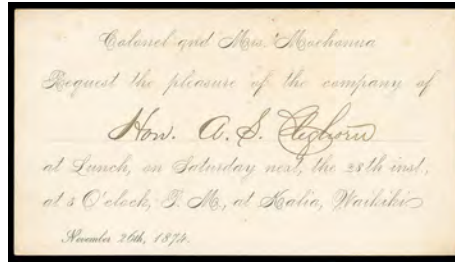 Colonel and Mrs. Moehonua
Request the pleasure of the company of
Hon. A. S. Cleghorn
at Lunch, on Saturday next, the 28th inst.,
at 2 O'clock, P. M., at Kalia, Waikiki
November 26th, 1874.